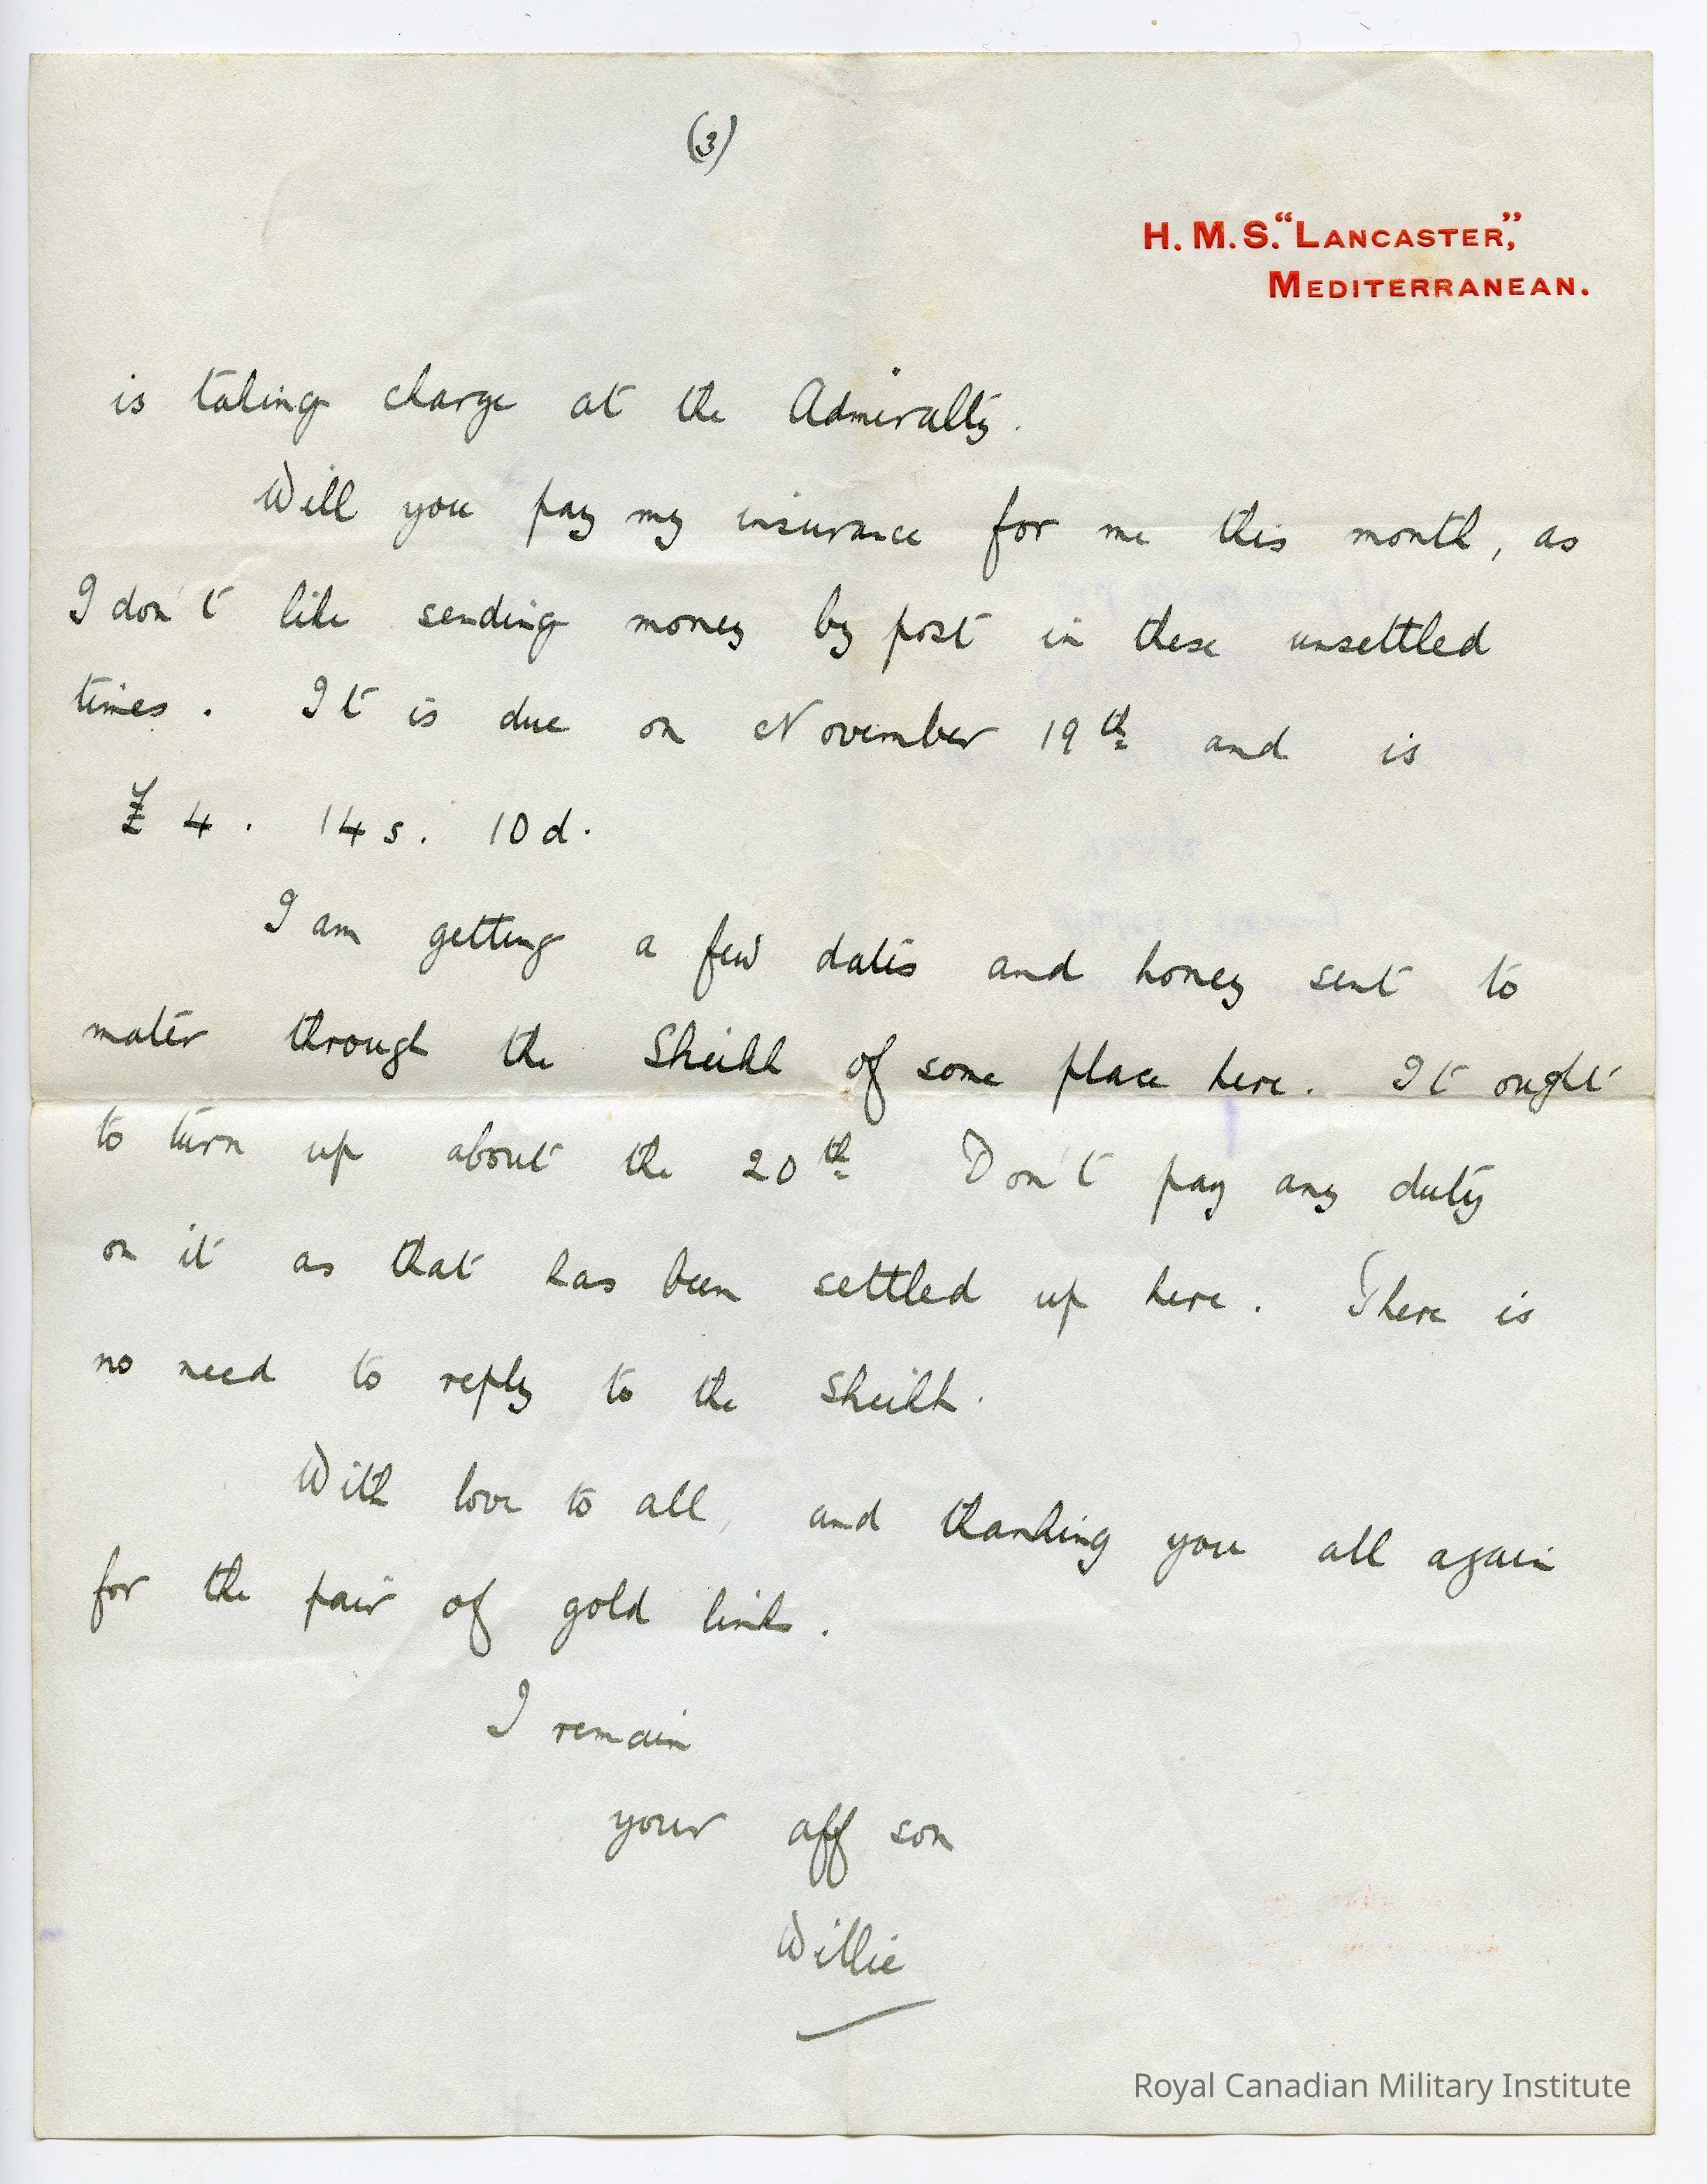 (3)
H. M. S. "LANCASTER,"
MEDITERRANEAN.
is taking charge at the Admiralty.
Will you pay my insurance for me this month, as
I don't like sending money by post in these unsettled
times. It is due on November 19th and is
£4. 14s. 10d.
I am getting a few dates and honey sent to
mater through the Sheikh of some place here. It ought
to turn up about the 20th Don't pay any duty
on it as that has been settled up here. There is
no need to reply to the Sheikh.
With love to all, and thanking you all again
for the pair of gold links.
I remain
your aff son
Willie
Royal Canadian Military Institute